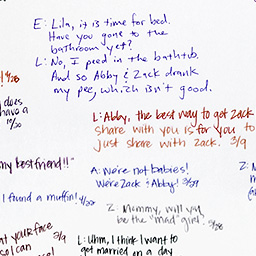 E: Lila, it is time for bed.
Have you gone to the
bathroom yet?
L: No, I peed in the bathtub.
And so Abby & Zack drank
my pee, which isn't good.
! 4/28
does
have a
10/30
L: Abby, the best way to get Zack
share with you is for you to
just share with Zack. 3/9
my best friend!!"
A: We're not babies!
We're Zack & Abby! 3/29
I found a muffin! 4/22
Z: Mommy, will you
be the "mad" girl? 3/28
at your face
so I can
3/9
L: Uhm, I think I want to
get married on a day